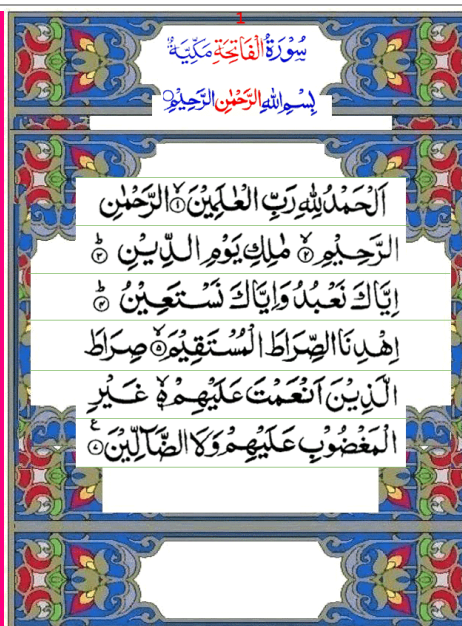 1
سُوْرَةُ الْفَاتِحَةِ مَكِّيَّةٌ
بِسْمِ اللهِ الرَّحْمٰنِ الرَّحِيْمِ
اَلْحَمْدُ لِلّٰهِ رَبِّ الْعٰلَمِيْنَ ۙ﴿۱﴾ الرَّحْمٰنِ
الرَّحِيْمِ ۙ﴿۲﴾ مٰلِكِ يَوْمِ الدِّيْنِ ؕ﴿۳﴾
اِيَّاكَ نَعْبُدُ وَاِيَّاكَ نَسْتَعِيْنُ ؕ﴿۴﴾
اِهْدِنَا الصِّرَاطَ الْمُسْتَقِيْمَ ۙ﴿۵﴾ صِرَاطَ
الَّذِيْنَ اَنْعَمْتَ عَلَيْهِمْ ۙ۬ۦ غَيْرِ
الْمَغْضُوْبِ عَلَيْهِمْ وَلَا الضَّآلِّيْنَ ﴿۷﴾ ع